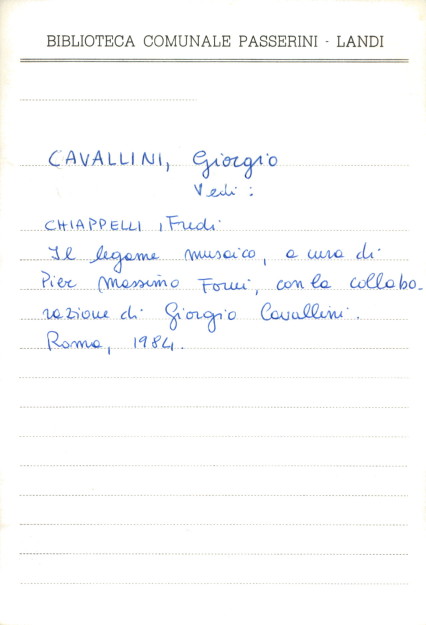 BIBLIOTECA COMUNALE PASSERINI - LANDI
CAVALLINI, Giorgio
Vedi :
CHIAPPELLI , Fredi
Il legame musaico, a cura di
Pier Massimo Forni, con la collabo-
razione di Giorgio Cavallini.
Roma, 1984.